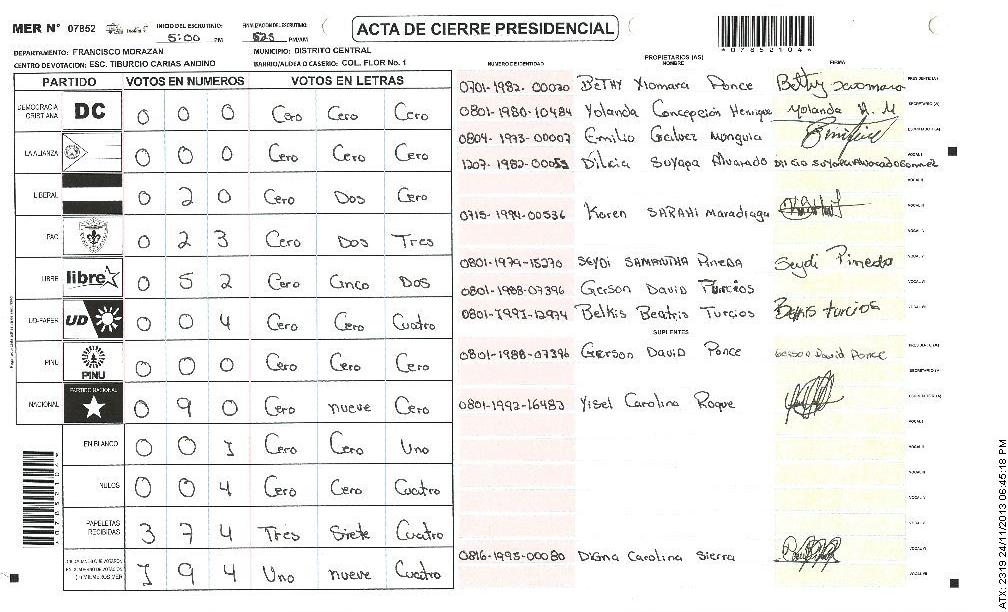 MER N° 07852 INICIO DEL ESCRUTINIO: 5:00 PM FINALIZACION DEL ESCRUTINIO: 825 PM/AM ACTA DE CIERRE PRESIDENCIAL
07852104
DEPARTAMENTO: FRANCISCO MORAZAN MUNICIPIO: DISTRITO CENTRAL
CENTRO DE VOTACION: ESC. TIBURCIO CARIAS ANDINO BARRIO/ALDEA O CASERIO: COL. FLOR No. 1
PARTIDO VOTOS EN NUMEROS VOTOS EN LETRAS
DEMOCRACIA CRISTIANA DC 0 0 0 Cero Cero Cero
LA ALIANZA 0 0 0 Cero Cero Cero
LIBERAL 0 2 0 Cero Dos Cero
PAC 0 2 3 Cero Dos Tres
LIBRE libre 0 5 2 Cero Cinco Dos
UD-FAPER UD 0 0 4 Cero Cero Cuatro
PINU PINU 0 0 0 Cero Cero Cero
NACIONAL PARTIDO NACIONAL 0 9 0 Cero nueve Cero
EN BLANCO 0 0 1 Cero Cero Uno
NULOS 0 0 4 Cero Cero Cuatro
PAPELETAS RECIBIDAS 3 7 4 Tres Siete Cuatro
1 9 4 Uno nueve Cuatro
NUMERO DE IDENTIDAD PROPIETARIOS (AS) NOMBRE FIRMA
0701-1982-00020 Bethy Xiomara Ponce Bethy PRESIDENTE (A)
0801-1980-10484 Yolanda Concepción Henrique Yolanda H. M SECRETARIO (A)
0804-1973-00007 Emilio Galvez Munguia ESCRUTADOR (A)
1207-1982-00053 Dilcia Suyapa Alvarado VOCAL I
VOCAL II
0715-1994-00536 Karen SARAHi Maradiaga VOCAL III
VOCAL IV
0801-1979-15270 SEYDI SAMANTHA PINEDA Seydi Pineda VOCAL V
0801-1988-07396 Gerson David Turcios VOCAL VI
0801-1993-12974 Belkis Beatris Turcios Belkis turcios VOCAL VII
SUPLENTES
0801-1988-07396 Gerson David Ponce Gerson David Ponce PRESIDENTE (A)
SECRETARIO (A)
0801-1992-16483 Yisel Carolina Roque ESCRUTADOR (A)
VOCAL I
VOCAL II
VOCAL III
VOCAL IV
VOCAL V
0816-1995-00080 Digna Carolina Sierra VOCAL VI
VOCAL VII
ATX: 2319 24/11/2013 06:45:18 PM